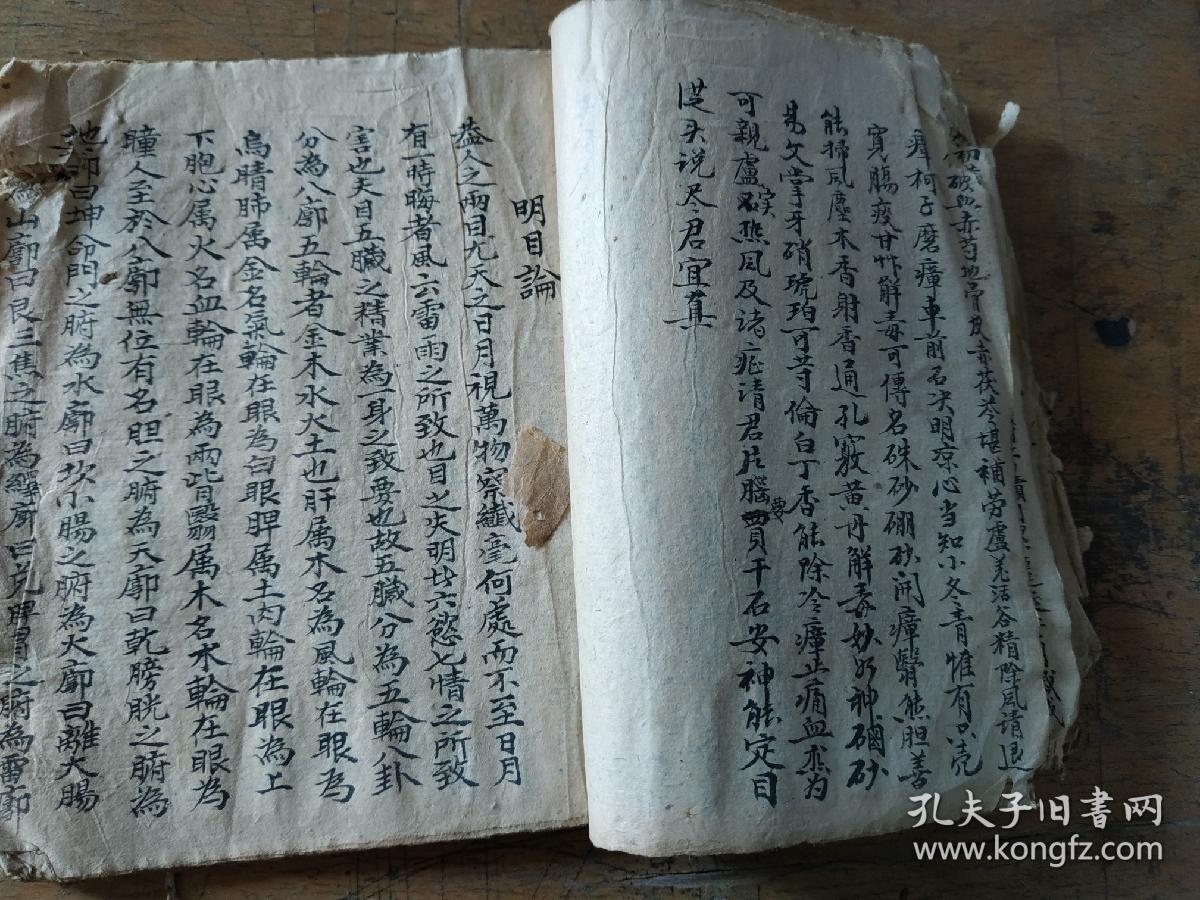 破血赤芍地骨皮赤茯苓堪補劳虛羌活谷精除風請退
瘴柯子磨瘴車前石决明凉心当知小冬青惟有只壳
寛膓疫甘艸解毒可傳名硃砂硼砂開瘴翳熊胆善
能掃風塵木香射香通孔竅黄丹解毒妙如神硇砂
易欠掌牙硝琥珀可䓁倫白丁香能除冷瘴止痛血杰为
可親盧石㷱風及诸症请君片腦買干石安神能定目
実
要
従头说尽君宜真
明目論
蓋人之兩目尤天之日月視萬物察纖毫何處而不至日月
有一時晦者風云雷雨之所致也目之失明哉六慾七情之所致
害也夫目五臟之精業為一身之致要也故五臟分為五輪八卦
分為八廓五輪者金木水火土也肝属木名為風輪在眼為
烏睛肺属金名氣輪在眼為白眼脾属土肉輪在眼為上
下胞心属火名血輪在眼為兩眥翳属木名水輪在眼為
瞳人至於八廓無位有名胆之腑為天廓曰乾膀胱之腑為
地廓曰坤命門之腑為水廓曰坎小腸之腑為火廓曰離大腸
山廓曰艮三焦之腑為廓曰兑脾胃之腑為雷廓
孔夫子旧书网
www.kongfz.com